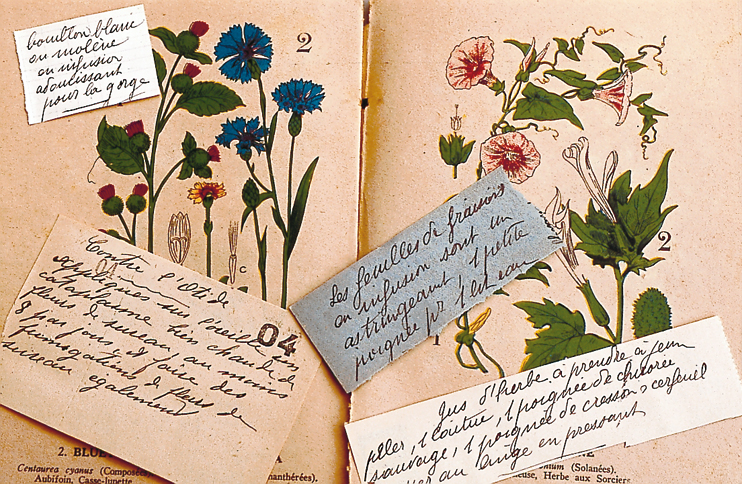 bouillon blanc
ou molène
en infusion
adoucissant
pour la gorge
2
Contre l'otite
appliquer sur oreille en
cataplasme bien chaud de
fleurs de sureau, au moins
8 par jour, et faire des
fumigations de fleurs de
sureau également
04
C
Les feuilles de fraisiers
en infusion sont un
astringeant, 1 petite
poignée pr 1 l et eau
2
1
Jus d'herbe à prendre à jeun
piler, 1 laitue, 1 poignée de chicorée
sauvage, 1 poignée de cresson, cerfeuil
au linge en pressant
2. BLUE
Centaurea cyanus (Composées
Aubifoin, Casse-lunette
nanthérées).
(Solanées).
Herbe aux Sorciers